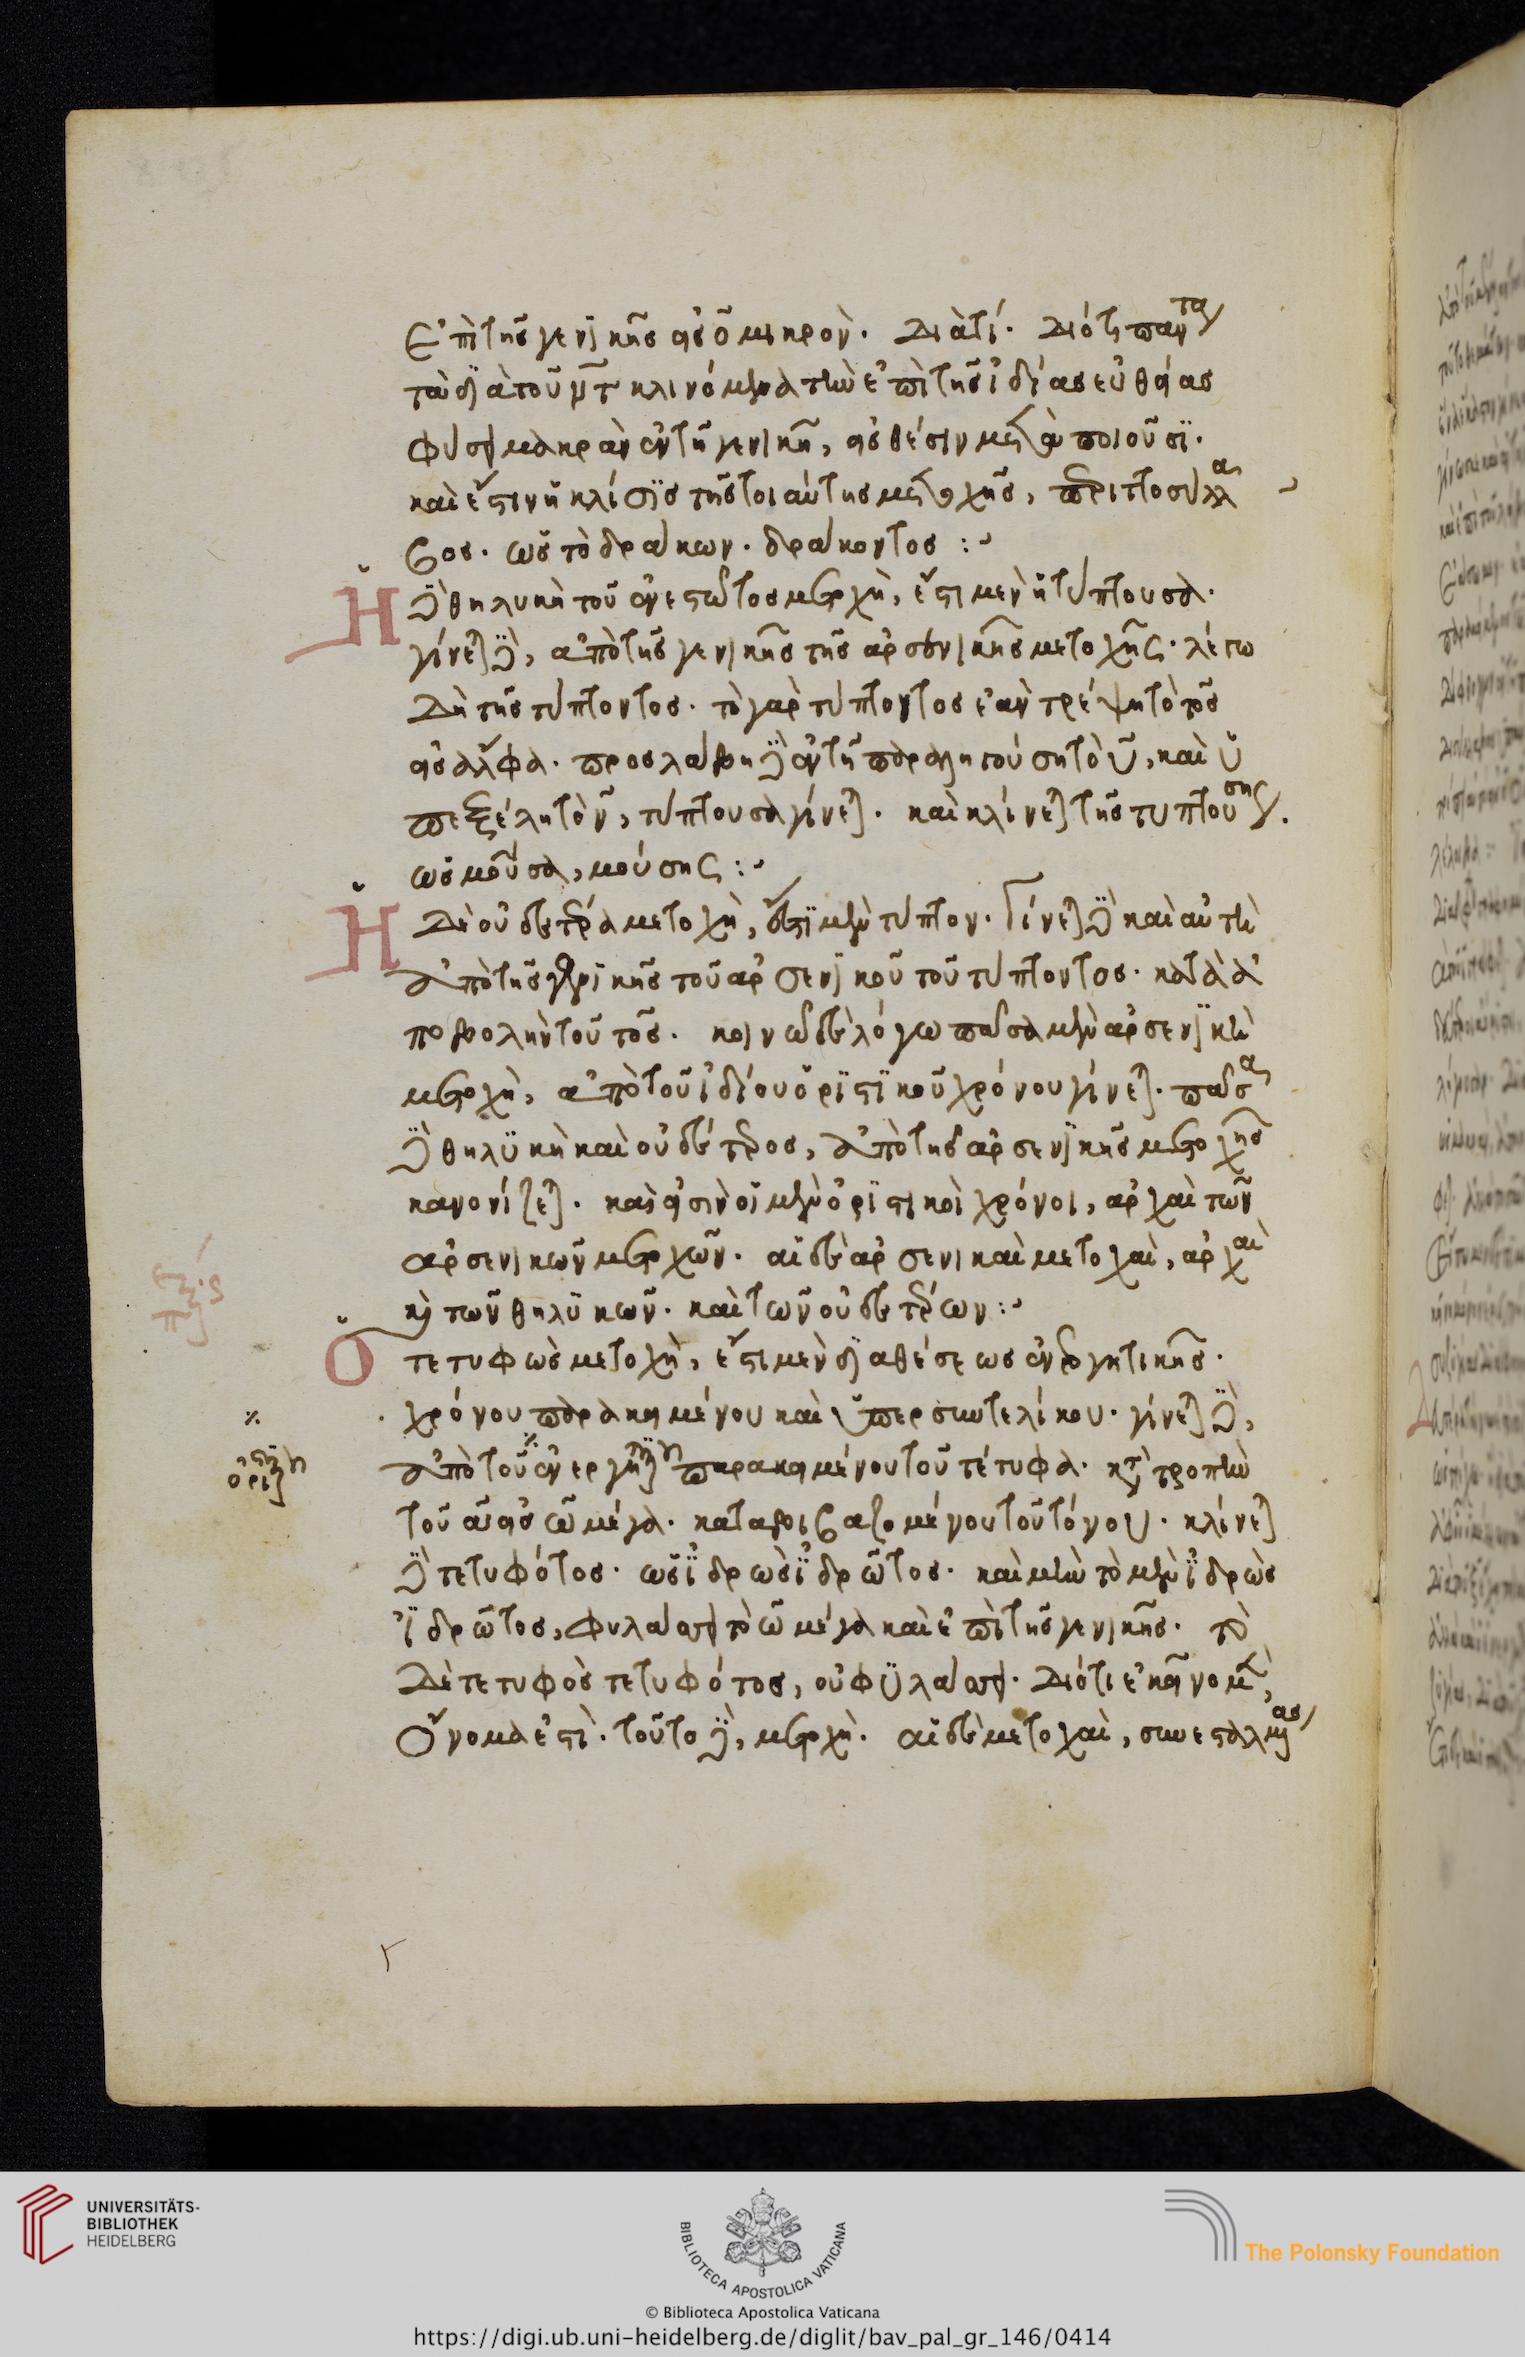 ἐπὶ τῆς γενικῆς εἰς ο μικρὸν. διὰ τί. διότι πάντα
τὰ διὰ τοῦ ντ κλινόμενα τὴν ἐπὶ τῆς ἰδίας εὐθείας
φύσει μακρὰν ἐν τῇ γενικῇ, εἰς θέσιν μεταποιοῦσι.
καὶ ἔστιν ἡ κλίσις τῆς τοιαύτης μετοχῆς, περιττοσύλλα
βος. ὡς τὸ δράκων. δράκοντος :~
Ἡ δὲ θηλυκὴ τοῦ ἐνεστῶτος μετοχὴ, ἔστι μὲν ἡ τύπτουσα.
γίνεται δὲ, ἀπὸ τῆς γενικῆς τῆς ἀρσενικῆς μετοχῆς. λέγω
δὴ τῆς τύπτοντος. τὸ γὰρ τύπτοντος ἐὰν τρέψῃ τὸ τος
εἰς ἄλφα. προσλάβῃ δὲ ἐν τῇ παραληγούσῃ τὸ υ, καὶ ὑ
πεξέλῃ τὸ ν, τύπτουσα γίνεται. καὶ κλίνεται τῆς τυπτούσης.
ὡς μοῦσα, μούσης :~
Ἡ δὲ οὐδετέρα μετοχὴ, ἔστι μὲν τύπτον. Γίνεται δὲ καὶ αὐτὴ
ἀπὸ τῆς γενικῆς τοῦ ἀρσενικοῦ τοῦ τύπτοντος. κατὰ ἀ
ποβολὴν τοῦ τος. κοινῶ δὲ λόγω πᾶσα μὲν ἀρσενικὴ
μετοχὴ, ἀπὸ τοῦ ἰδίου ὁριστικοῦ χρόνου γίνεται. πᾶσα
δὲ θηλυκὴ καὶ οὐδέτερος, ἀπὸ τῆς ἀρσενικῆς μετοχῆς
κανονίζεται. καὶ εἰσὶν οἱ μὲν ὁριστικοὶ χρόνοι, ἀρχαὶ τῶν
ἀρσενικῶν μετοχῶν. αἱ δὲ ἀρσενικαὶ μετοχαὶ, ἀρχαὶ
καὶ τῶν θηλυκῶν. καὶ τῶν οὐδετέρων :~
Ὁ τετυφὼς μετοχὴ, ἔστι μὲν διαθέσεως ἐνεργητικῆς.
χρόνου παρακειμένου καὶ ὑπερσυντελίκου. γίνεται δὲ,
ἀπὸ τοῦ ἐνεργητικοῦ παρακειμένου τοῦ τέτυφα. κατὰ τροπὴν
τοῦ α εἰς ω μέγα. καταβιβαζομένου τοῦ τόνου. κλίνεται
δὲ τετυφότος. ὡς ἱδρὼς ἱδρῶτος. καὶ μὴν τὸ μὲν ἱδρὼς
ἱδρῶτος, φυλάττει τὸ ω μέγα καὶ ἐπὶ τῆς γενικῆς. τὸ
δὲ τετυφὸς τετυφότος, οὐ φυλάττει. διότι ἐκεῖνο μὲν,
ὄνομα ἐστὶ. τοῦτο δὲ, μετοχὴ. αἱ δὲ μετοχαὶ, συνεσταλμένας
UNIVERSITÄTS-
BIBLIOTHEK
HEIDELBERG
BIBLIOTECA APOSTOLICA VATICANA
The Polonsky Foundation
© Biblioteca Apostolica Vaticana
https://digi.ub.uni-heidelberg.de/diglit/bav_pal_gr_146/0414